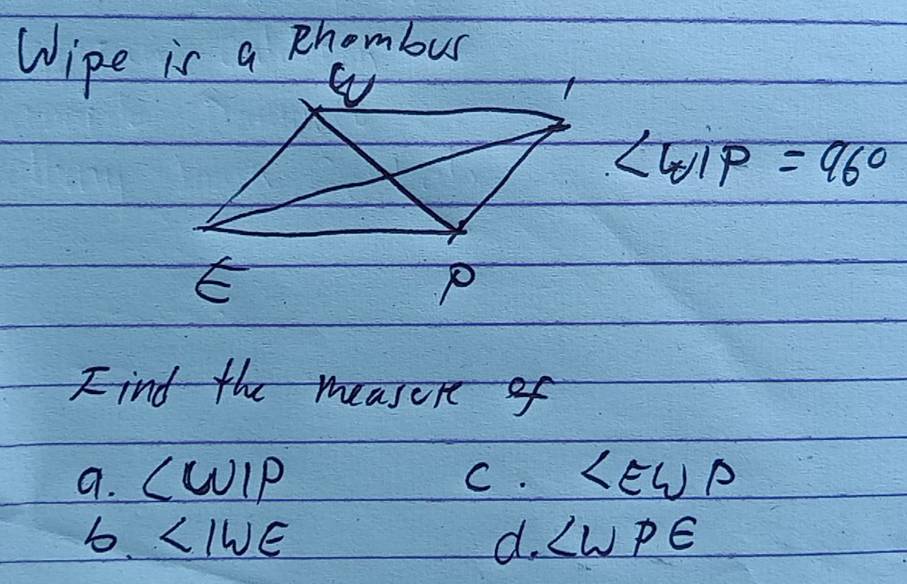 Wipe is a Rhombus
W I
∠WIP = 96°
E P
Find the measure of
a. ∠WIP c. ∠EWP
b. ∠IWE d. ∠WPE